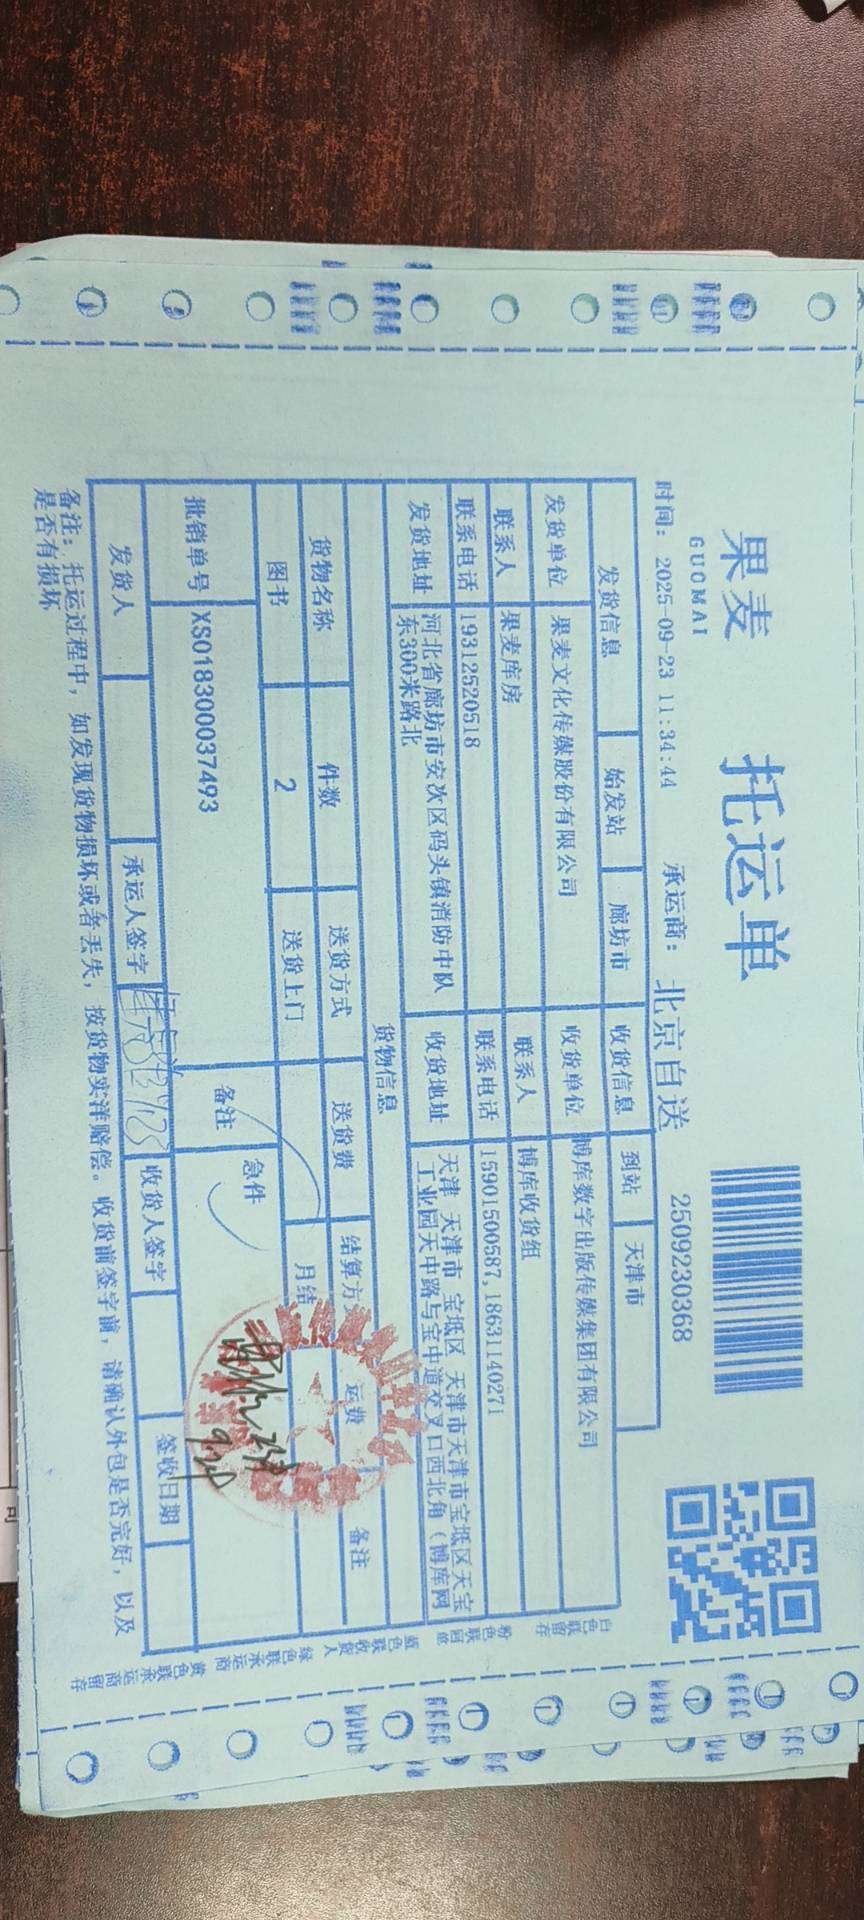 果麦 托运单
GUOMAI
2509230368
时间: 2025-09-23 11:34:44 承运商: 北京自送
发货信息 始发站 廊坊市 收货信息 到站 天津市
发货单位 果麦文化传媒股份有限公司 收货单位 博库数字出版传媒集团有限公司
联系人 果麦库房 联系人 博库收货组
联系电话 19312520518 联系电话 15901500587,18631140271
发货地址 河北省廊坊市安次区码头镇消防中队 收货地址 天津 天津市 宝坻区 天津市天津市宝坻区天宝
东300米路北 工业园天中路与宝中道交叉口西北角(博库网
货物信息
货物名称 件数 送货方式 送货费 结算方式 运费 备注
图书 2 送货上门 月结
批销单号 XS018300037493 备注 急件
发货人 承运人签字 收货人签字 签收日期
备注: 托运过程中, 如发现货物损坏或者丢失, 按货物实洋赔偿。收货前签字前, 请确认外包是否完好, 以及
是否有损坏
白色联留存
粉色联回单
蓝色联收货人
绿色联承运商
黄色联承运商留存